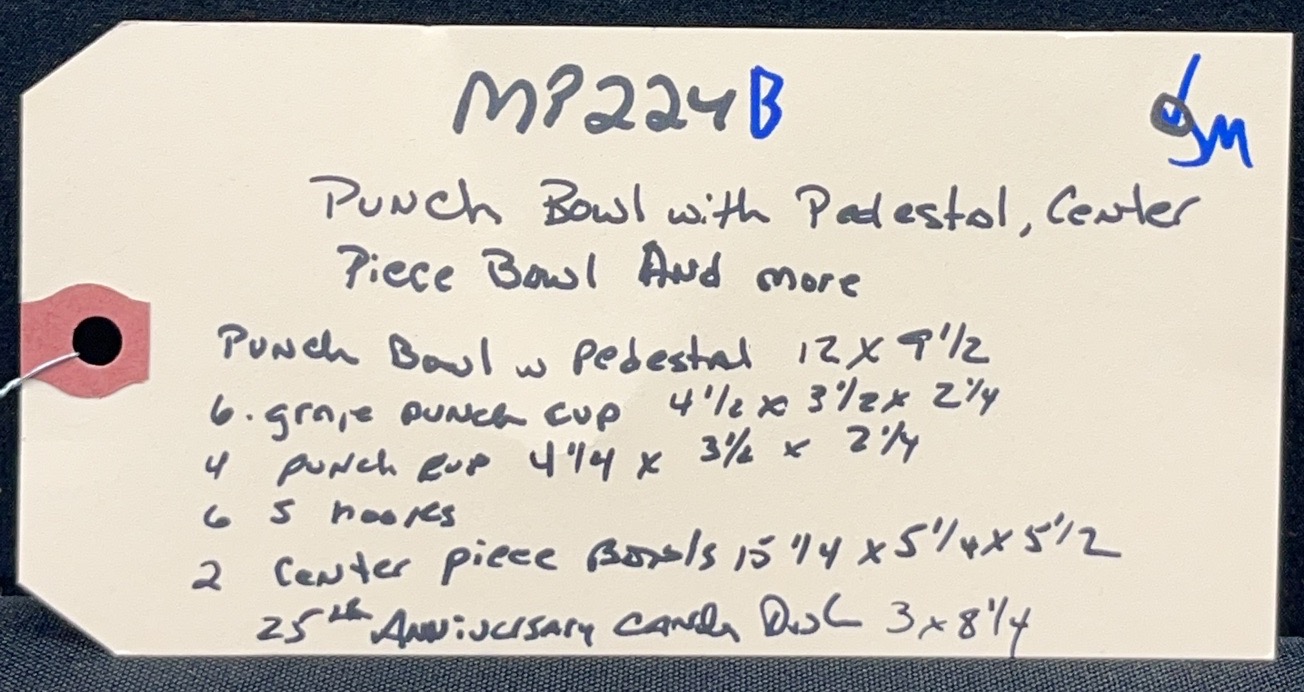 MP224B
JM
Punch Bowl with Pedestal, Center
Piece Bowl And more
Punch Bowl w Pedestal 12 x 9 1/2
6. grape punch cup 4 1/2 x 3 1/2 x 2 1/4
4 punch cup 4 1/4 x 3 1/2 x 2 1/4
6 S hooks
2 Center piece Bowls 15 1/4 x 5 1/4 x 5 1/2
25th Anniversary Candy Dish 3 x 8 1/4